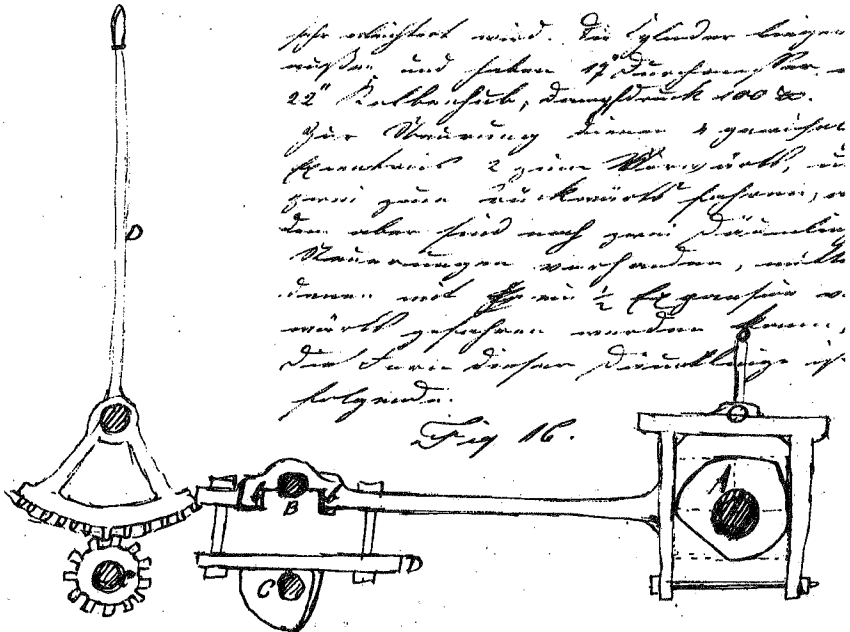 sehr erleichtert wird. Die Cylinder liegen
außen und haben 17" Durchmesser,
22" Kolbenhub, Dampfdruck 100 ℔.
Zur Steuerung dienen 4
Exentrics 2 zum Vorwärts,
zwei zum rückwärts fahren,
dem aber sind noch zwei Däumling
Steuerungen vorhanden,
denen mit ½ Expansion
wärts gefahren werden kann,
Die Form dieser Däumlinge
folgende.
Fig 16.
D
A
B
C
D